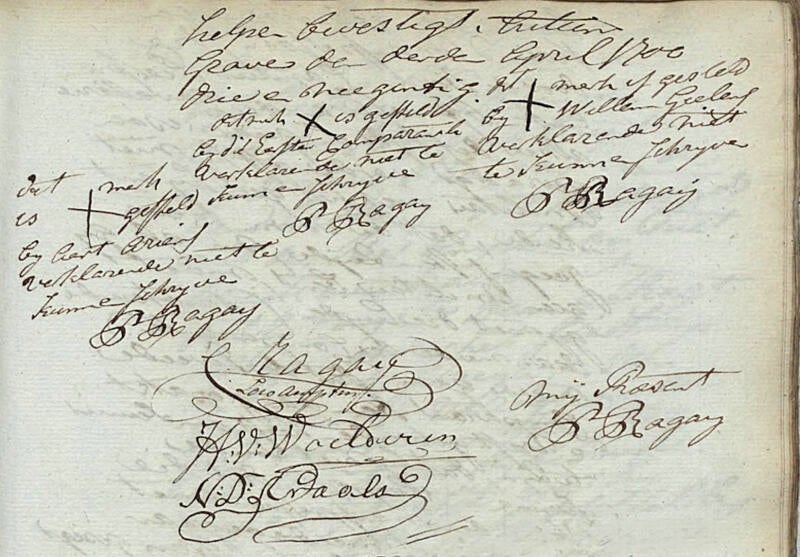 helpen bevestigt. Actum
Grave den derden April 1700
drie en neegentig.
dit merk X is gesteld
by d'Eerste Comparante
verklarende niet te
kunne schryve
P Ragay
dit + merk is gesteld
by Willem Geelen
verklarende niet
te kunne schryve
P Ragay
dit + merk
is gesteld
by Aert Ariens
verklarende niet te
kunne schryve
P Ragay
Ragay
H: V: Woelderen
N: D:
Mij Present
P Ragay